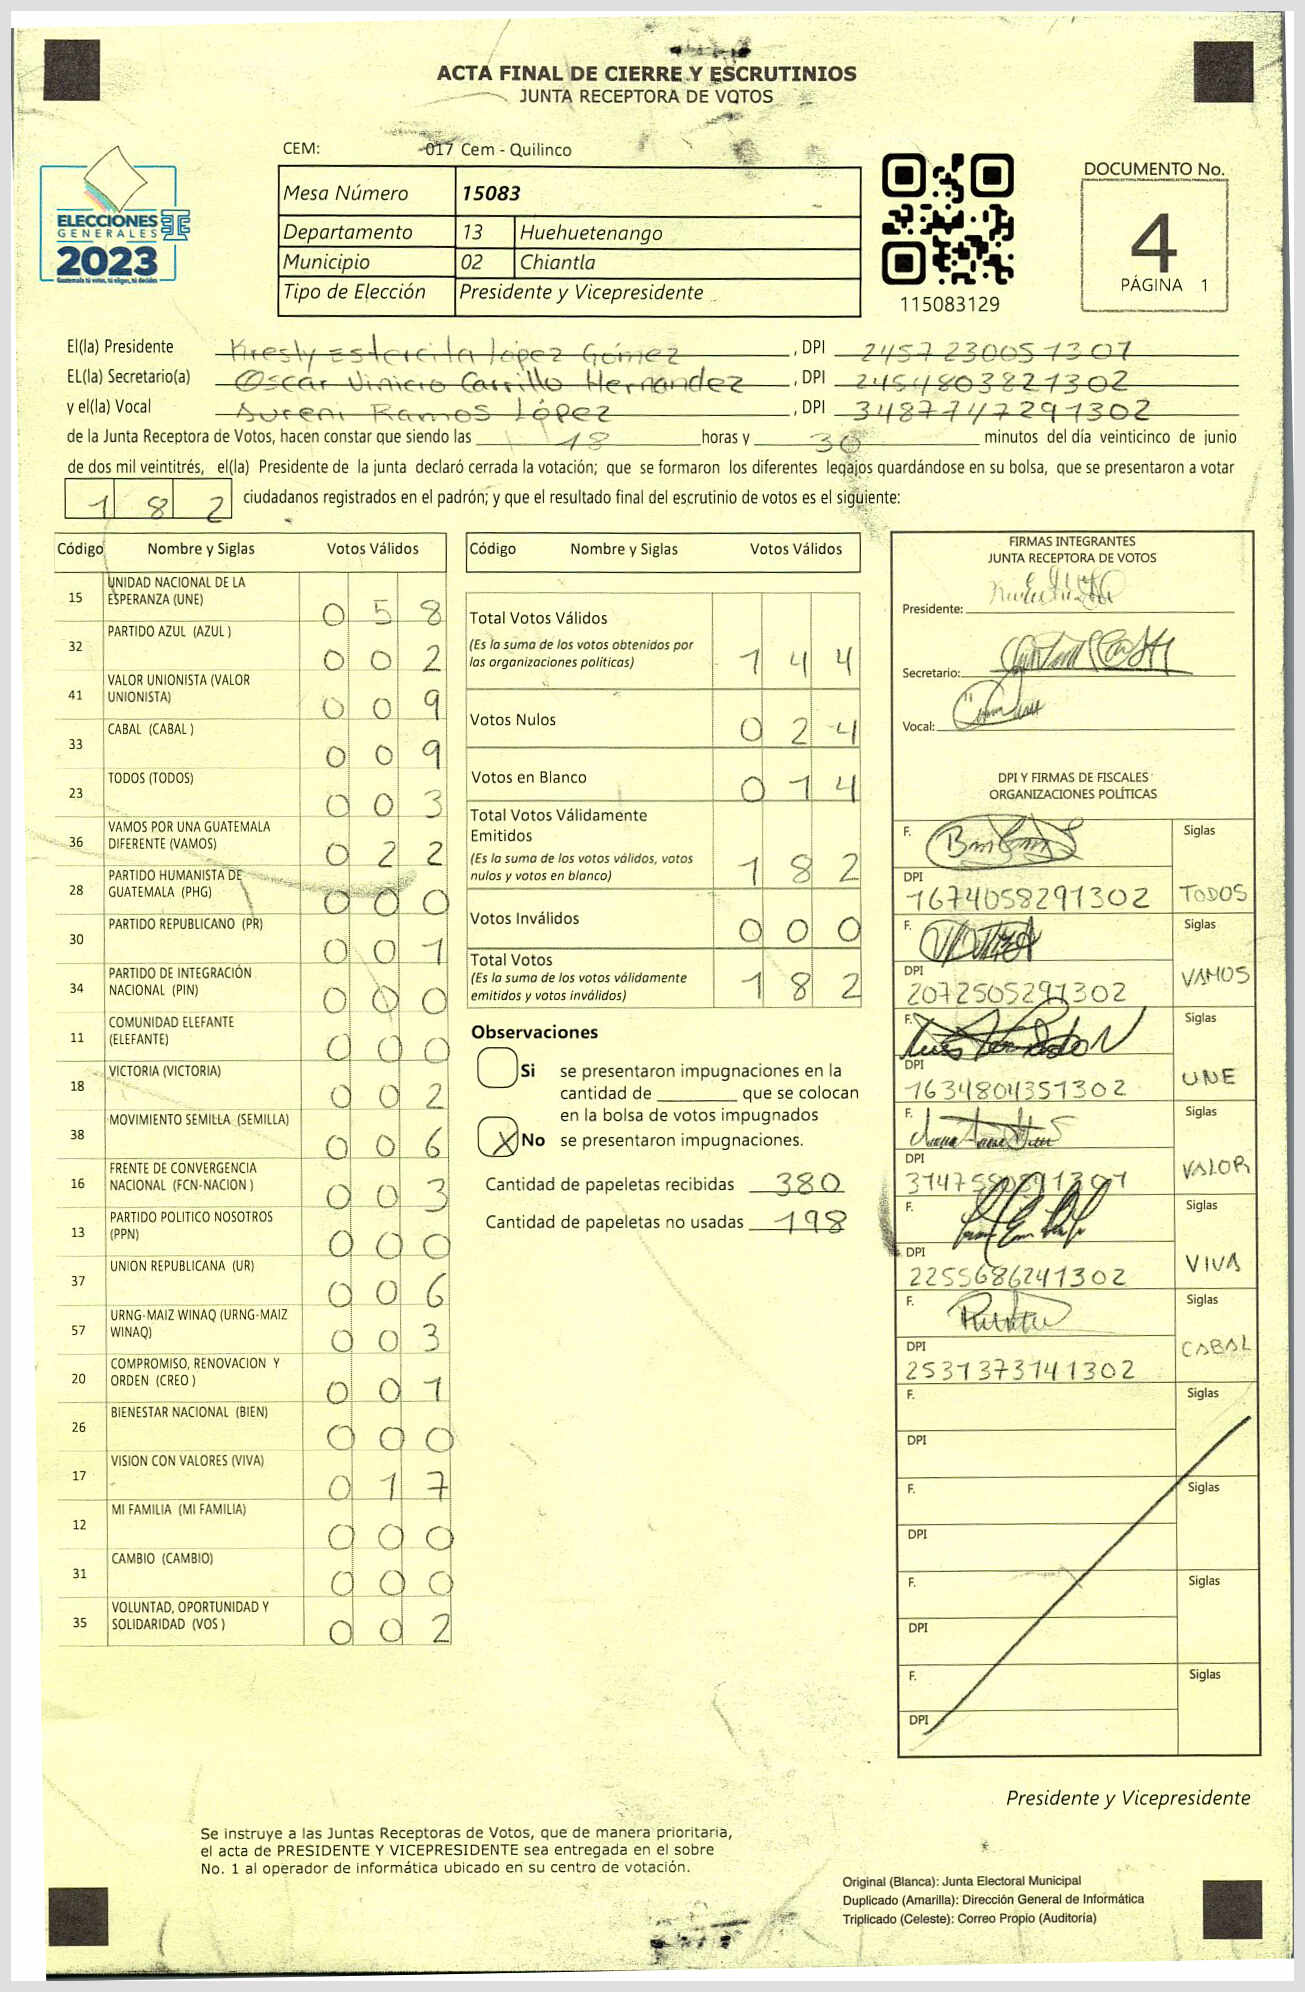 ACTA FINAL DE CIERRE Y ESCRUTINIOS
JUNTA RECEPTORA DE VOTOS
CEM: 017 Cem - Quilinco
ELECCIONES
GENERALES
2023
Guatemala tú votas, tú eliges, tú decides
Mesa Número 15083
Departamento 13 Huehuetenango
Municipio 02 Chiantla
Tipo de Elección Presidente y Vicepresidente
115083129
DOCUMENTO No.
4
PÁGINA 1
El(la) Presidente Kresly Estercita López Gómez, DPI 2457230051301
EL(la) Secretario(a) Oscar Vinicio Carrillo Hernandez, DPI 2454803821302
y el(la) Vocal Sureni Ramos López, DPI 3487747291302
de la Junta Receptora de Votos, hacen constar que siendo las 18 horas y 30 minutos del día veinticinco de junio
de dos mil veintitrés, el(la) Presidente de la junta declaró cerrada la votación; que se formaron los diferentes legajos quardándose en su bolsa, que se presentaron a votar
182 ciudadanos registrados en el padrón; y que el resultado final del escrutinio de votos es el siguiente:
Código Nombre y Siglas Votos Válidos
15 UNIDAD NACIONAL DE LA ESPERANZA (UNE) 0 5 8
32 PARTIDO AZUL (AZUL ) 0 0 2
41 VALOR UNIONISTA (VALOR UNIONISTA) 0 0 9
33 CABAL (CABAL ) 0 0 9
23 TODOS (TODOS) 0 0 3
36 VAMOS POR UNA GUATEMALA DIFERENTE (VAMOS) 0 2 2
28 PARTIDO HUMANISTA DE GUATEMALA (PHG) 0 0 0
30 PARTIDO REPUBLICANO (PR) 0 0 1
34 PARTIDO DE INTEGRACIÓN NACIONAL (PIN) 0 0 0
11 COMUNIDAD ELEFANTE (ELEFANTE) 0 0 0
18 VICTORIA (VICTORIA) 0 0 2
38 MOVIMIENTO SEMILLA (SEMILLA) 0 0 6
16 FRENTE DE CONVERGENCIA NACIONAL (FCN-NACION ) 0 0 3
13 PARTIDO POLITICO NOSOTROS (PPN) 0 0 0
37 UNION REPUBLICANA (UR) 0 0 6
57 URNG-MAIZ WINAQ (URNG-MAIZ WINAQ) 0 0 3
20 COMPROMISO, RENOVACION Y ORDEN (CREO ) 0 0 1
26 BIENESTAR NACIONAL (BIEN) 0 0 0
17 VISION CON VALORES (VIVA) 0 1 7
12 MI FAMILIA (MI FAMILIA) 0 0 0
31 CAMBIO (CAMBIO) 0 0 0
35 VOLUNTAD, OPORTUNIDAD Y SOLIDARIDAD (VOS ) 0 0 2
Código Nombre y Siglas Votos Válidos
Total Votos Válidos
(Es la suma de los votos obtenidos por
las organizaciones políticas) 1 4 4
Votos Nulos 0 2 4
Votos en Blanco 0 1 4
Total Votos Válidamente
Emitidos
(Es la suma de los votos válidos, votos
nulos y votos en blanco) 1 8 2
Votos Inválidos 0 0 0
Total Votos
(Es la suma de los votos válidamente
emitidos y votos inválidos) 1 8 2
Observaciones
Si se presentaron impugnaciones en la
cantidad de ________ que se colocan
en la bolsa de votos impugnados
X No se presentaron impugnaciones.
Cantidad de papeletas recibidas 380
Cantidad de papeletas no usadas 198
FIRMAS INTEGRANTES
JUNTA RECEPTORA DE VOTOS
Presidente:
Secretario:
Vocal:
DPI Y FIRMAS DE FISCALES
ORGANIZACIONES POLÍTICAS
F. Siglas
DPI 1674058291302 TODOS
F. Siglas
DPI 2072505291302 VAMOS
F. Siglas
DPI 1634804351302 UNE
F. Siglas
DPI VALOR
F. Siglas
DPI 2255686241302 VIVA
F. Siglas
DPI 2531373141302 CABAL
F. Siglas
DPI
F. Siglas
DPI
F. Siglas
DPI
F. Siglas
DPI
Presidente y Vicepresidente
Se instruye a las Juntas Receptoras de Votos, que de manera prioritaria,
el acta de PRESIDENTE Y VICEPRESIDENTE sea entregada en el sobre
No. 1 al operador de informática ubicado en su centro de votación.
Original (Blanca): Junta Electoral Municipal
Duplicado (Amarilla): Dirección General de Informática
Triplicado (Celeste): Correo Propio (Auditoría)